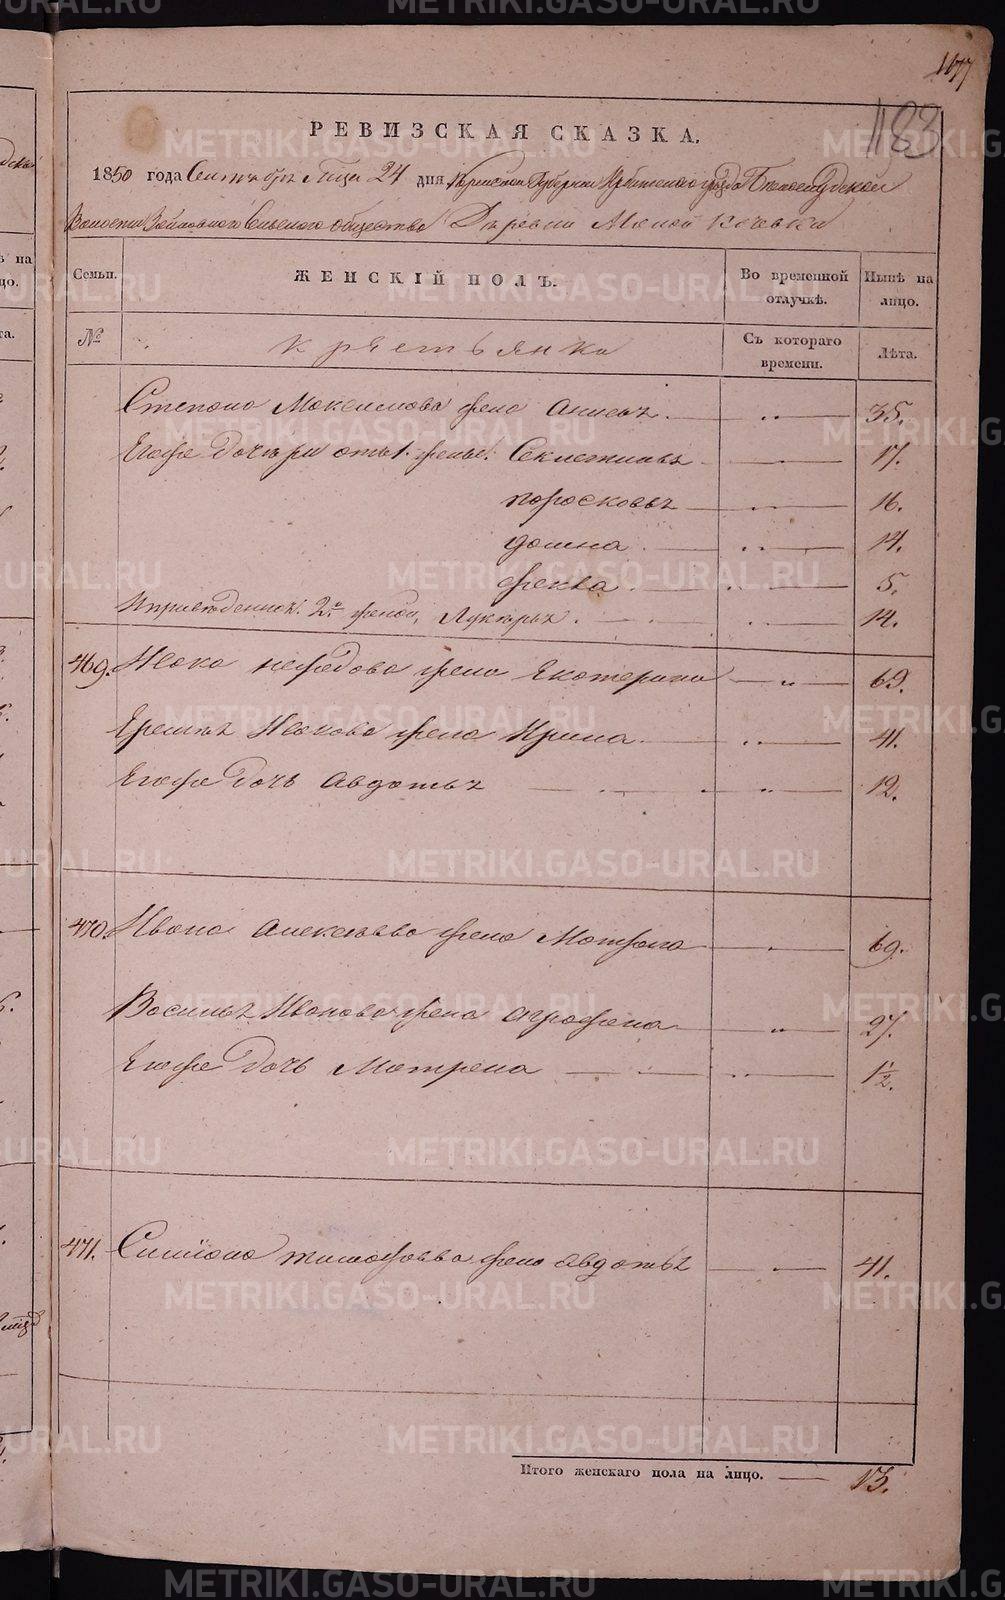 1177
183
РЕВИЗСКАЯ СКАЗКА.
1850 года Сентября м-ца 24 дня Пермской Губернии Ирбитского уезда Белослудской
Волости Зайковского Сельского общества Деревни Малой Кочевки
Семьи. ЖЕНСКІЙ ПОЛЪ. Во временной отлучкѣ. Нынѣ на лицо.
№ Крестьянка Съ котораго времени. Лѣта.
Степана Максимова жена Анисья 35.
Его же дочери отъ 1. жены: Секлетинья 17.
Парасковья 16.
Домна 14.
Фекла 5.
И приведенная 2й женой, Лукерья 14.
469. Исака Нефедова жена Екатерина 69.
Еремея Исакова жена Ирина 41.
Его же дочь Авдотья 12.
470. Ивана Алексеева жена Матрона 69.
Василья Иванова жена Аграфена 27.
Его же дочь Матрена 1½.
471. Симиона Тимофеева жена Авдотья 41.
Итого женскаго пола на лицо. 13.
METRIKI.GASO-URAL.RU